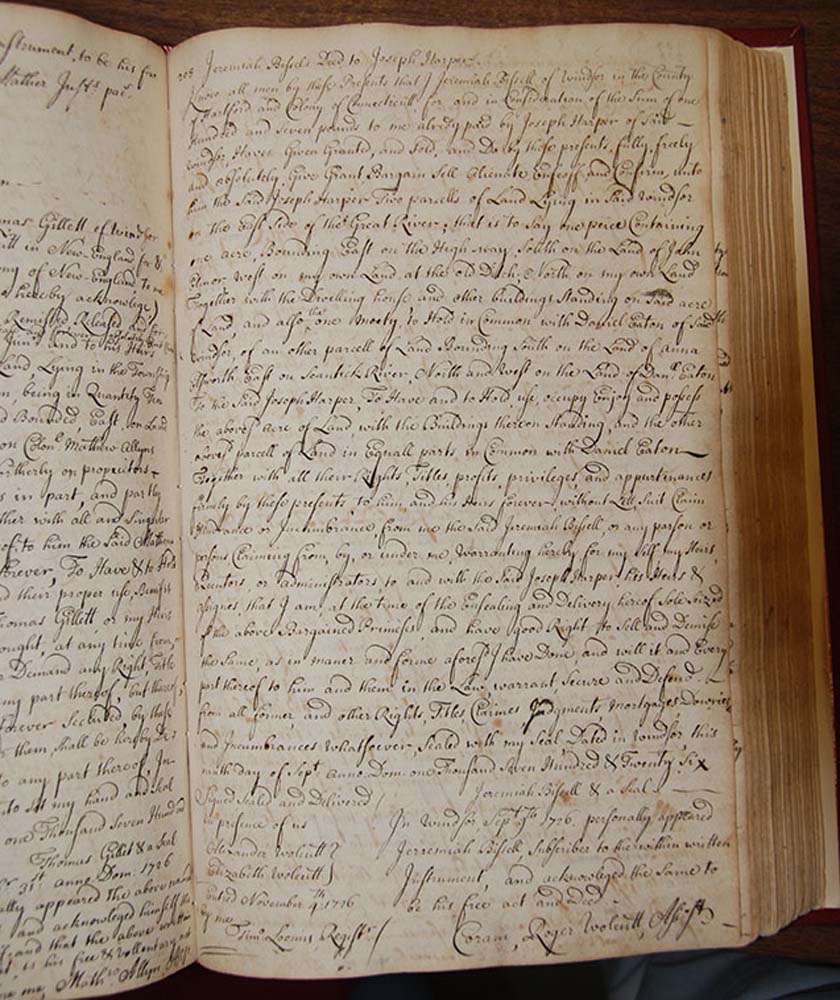 strument, to be his free
Mather Justs pacs.
mas Gillett of windsor
in New-England for &
ny of New-England to me
hereby acknowlege)
Remissed Released and
and to his Heirs
Land Lying in the Township
n, being in Quantity Ten
d Bounded, East, on Land
on Colonl. Mathew Allyns
ortherly on propriotors
s in part, and partly
ther with all and Singular
of, to him the Said Mathew
forever, To Have & to Hold
d their proper use, Benefit
Thomas Gillett or my Heirs
ought, at any time from
r Demand any Right, Title
any part thereof, but thereof
forever Secluded, by these
them, shall be hereby De
to any part thereof, In
to set my hand and seal
one Thousand Seven Hundred
Thomas Gillet & a Seal
31st anno Dom. 1726
ally appeared the above
and acknowleged himself
and that the above written
is his free & vollentary act
me, Mathw Allyn, Assist
Jeremiah Bissels Deed to Joseph Harper.
Know all men by these Presents that I Jeremiah Bissell of Windsor in the County
of Hartford and Colony of Connecticutt for and in Consideration of the Sum of one
Hundred and Seven pounds to me alredy paid by Joseph Harper of said
windsor, Have Given Granted, and Sold, and Do by these presents, fully, freely
and absolutely, Give Grant Bargain Sell Alienate Enfeoff and Confirm, unto
him the Said Joseph Harper Two parcells of Land Lying in Said Windsor
on the East Side of the Great River; that is to Say one peice Containing
one acre, Bounding East on the High way, South on the Land of John
Elmor West on my own Land, at the old Dich, North on my own Land
Together with the Dwelling house and other buildings Standing on Said acre
of Land, and also the one Moety, to Hold in Common with Daniel Eaton of Said
windsor, of an other parcell of Land Bounding South on the Land of anna
Elsworth East on Scantick River, North and West on the Land of Danl. Eaton
To the Said Joseph Harper, To Have and to Hold, use, occupy Enjoy and posess
the abovesd acre of Land, with the Buildings thereon Standing, and the other
abovesd parcell of Land in Equall parts, in Common with Daniel Eaton
Together with all their Rights, Titles, profits, privileges, and appurtinances
firmly by these presents, to him, and his Heirs forever, without Lett Suit Claim
Hindrance or Incumbrance, from me the Said Jeremiah Bissell, or any parson or
parsons Claiming from, by, or under me, Warranting hereby for my Self my Heirs,
Executors, or administrators to and with the Said Joseph Harper his Heirs &
assignes, that I am, at the time of the Ensealing and Delivery hereof Sole Seized
of the above Bargained Primeses, and have good Right to Sell and Demise
the Same, as in maner and forme aforesd I have Done and will it and Every
part thereof to him and them in the Law, warrant, Secure and Defend
from all former and other Rights, Titles Claimes Judgments Mortgages Dowries
and Incumbrances Whatsoever, Sealed with my Seal Dated in Windsor, this
ninth day of Sept. Anno. Dom. one Thousand Seven Hundred & Twenty Six
Signed Sealed and Delivered Jeremiah Bissell & a Seal
in presence of us In Windsor, Sept. 9th 1726, personally appeared
Alexander Wolcutt Jerremiah Bissell, Subscriber to the within written
Elizabeth Wolcutt Instrument, and acknowleged the Same to
Entred November 4th 1726 be his free act and Deed
by me
Timo. Loomis Registr. Coram, Roger Wolcutt, Assist